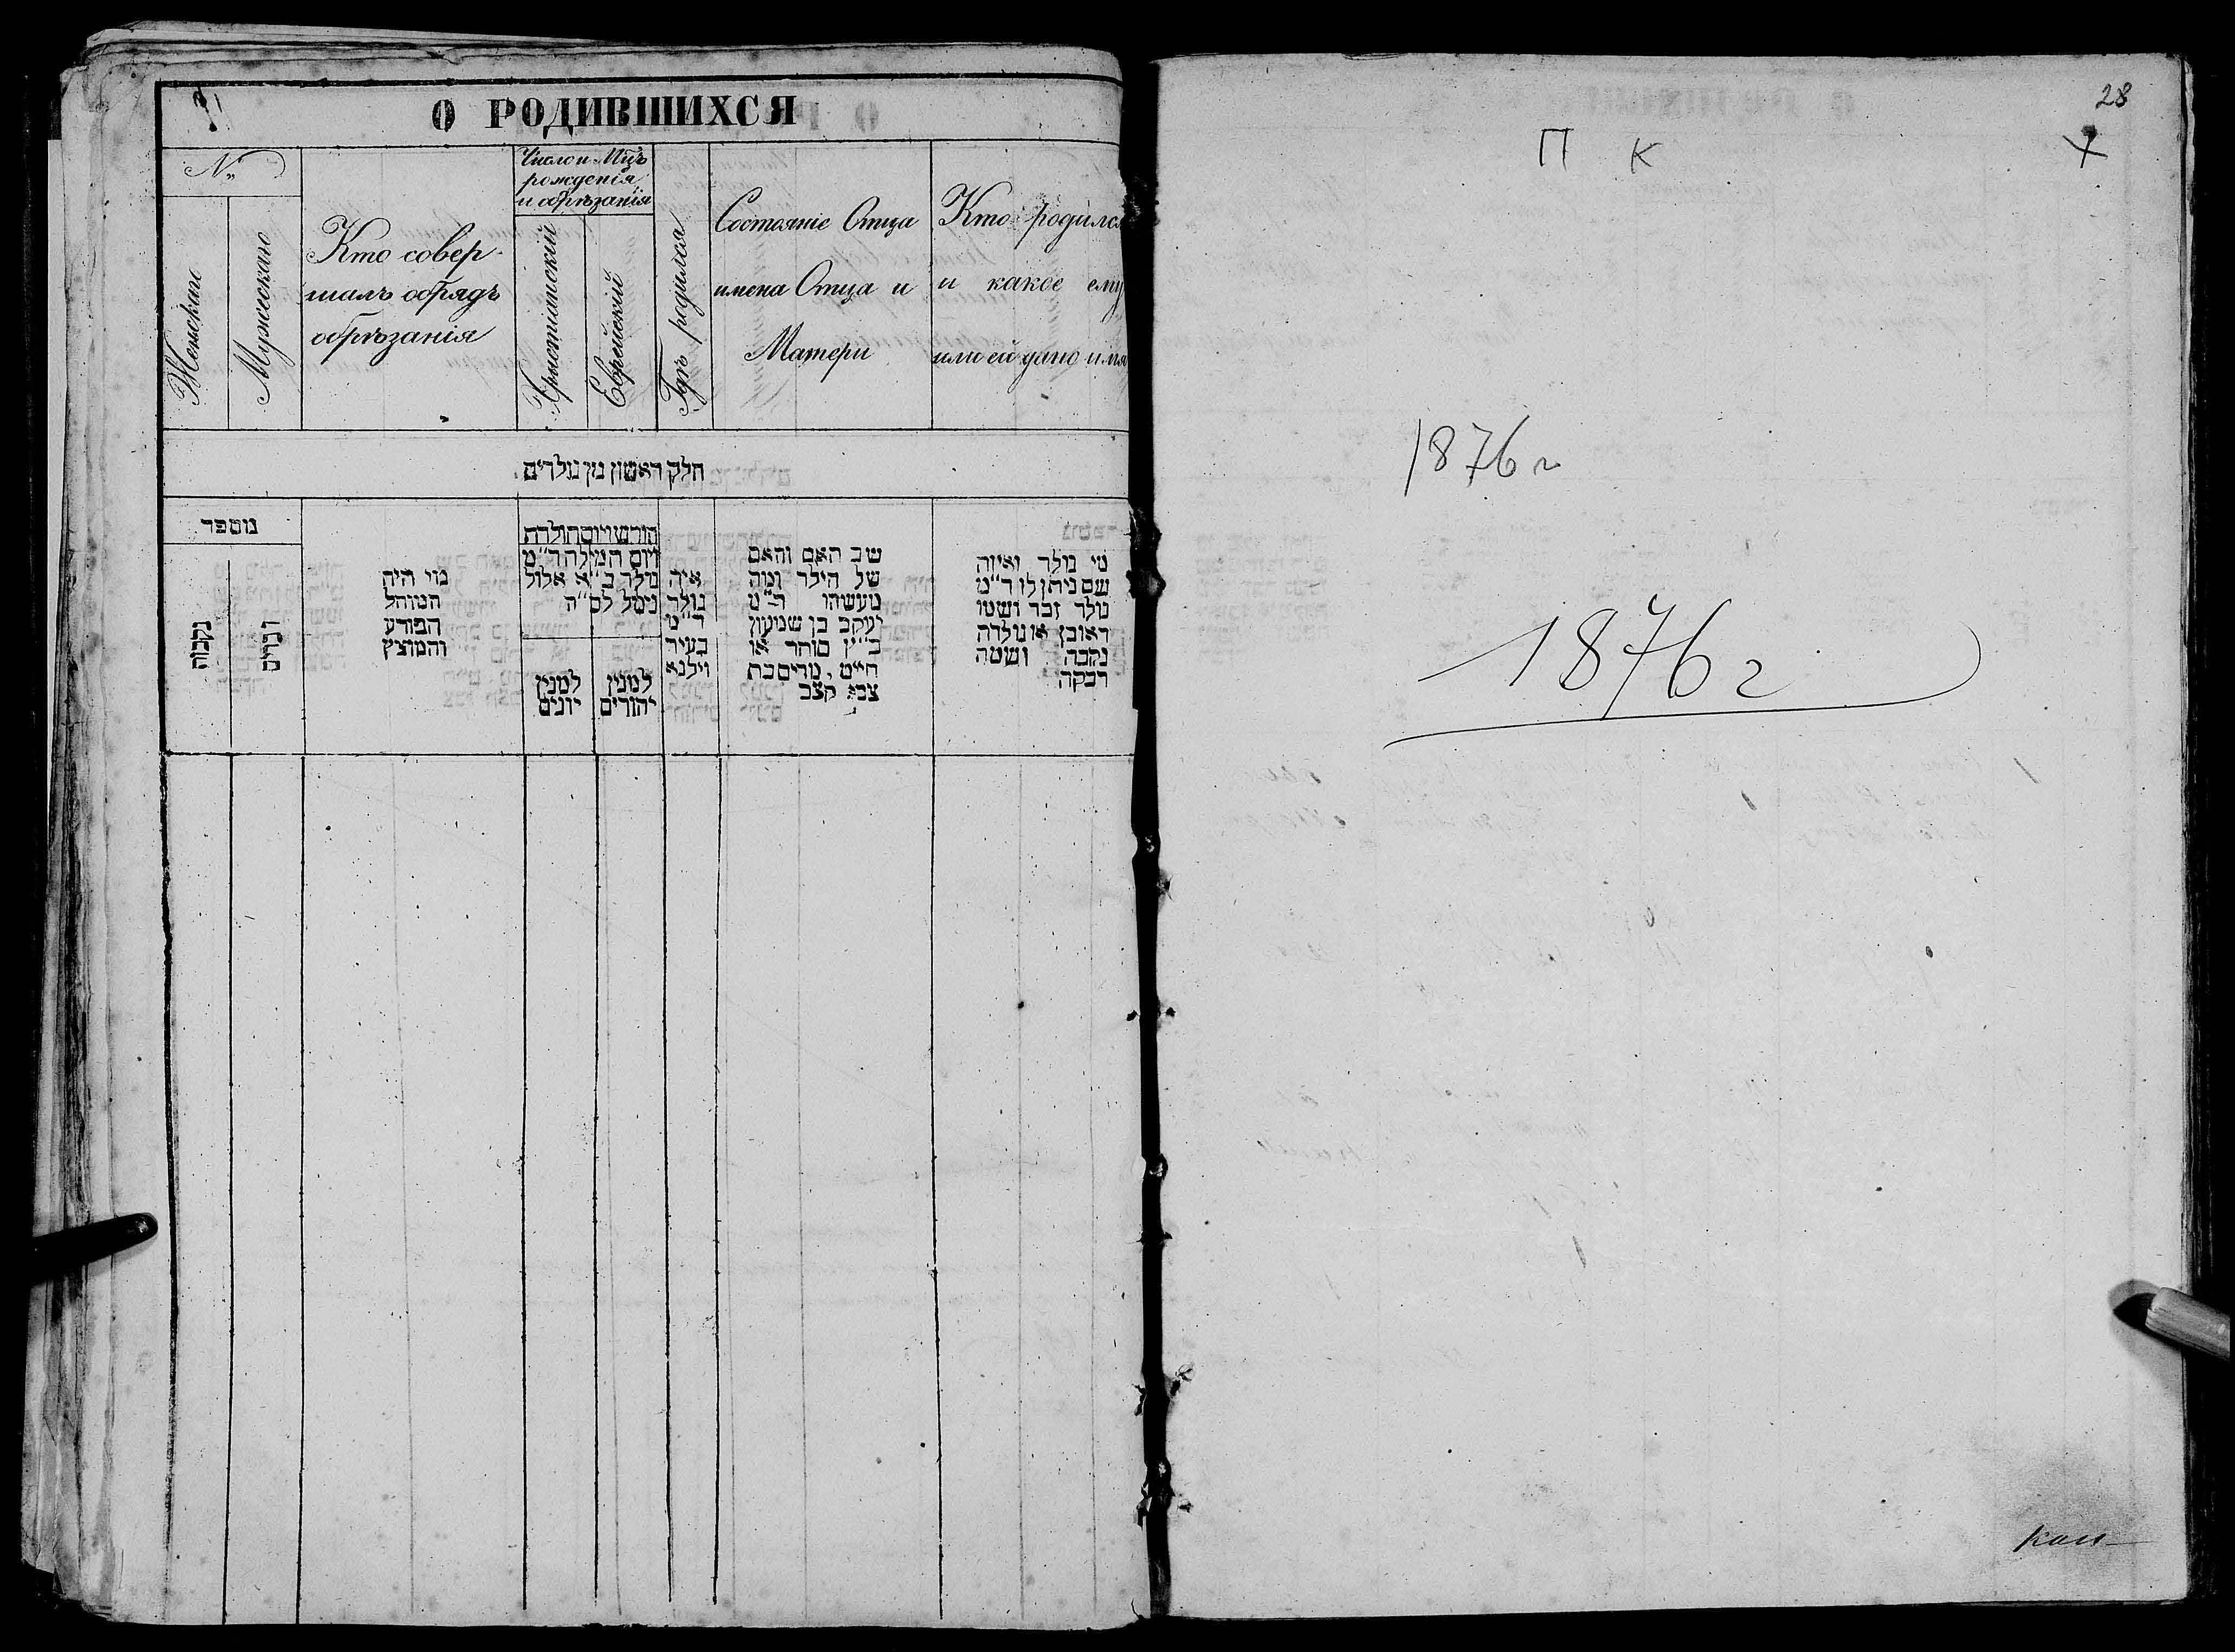 О РОДИВШИХСЯ
№
Женскаго
Мужескаго
Кто совер-
шалъ обрядъ
обрѣзанія
Число и Мцъ
рожденія
и обрѣзанія
Христіанскій
Еврейскій
Гдѣ родился
Состояніе Отца
имена Отца и
Матери
Кто родился
и какое ему
или ей дано имя
חלק ראשון מן נולדים
מספר
נקבות
זכרים
מי היה
המוהל
הפורע
והמוצץ
חודש ויום תולדת
ויום המילה ד״מ
נולד ב״א אלול
נימל לס״ה
למנין
יונים
למנין
יהודים
איה
נולד
ד״מ
בעיר
וילנא
שב האם והאם
של הילד ומה
מעשהו ד״מ
יעקב בן שמעון
כ״ץ סוחר או
חייט, מרים בת
צבי קצב
מי נולד ואיזה
שם ניתן לו ד״מ
נולד זכר ושמו
ראובן או נולדה
נקבה ושמה
רבקה
28
П К
1876 г
1876 г